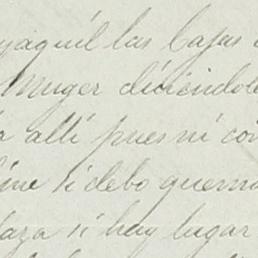 yaquíl las Cajas
Muger diciendole
a alli pues ni con
ine si debo quema
laza si hay lugar